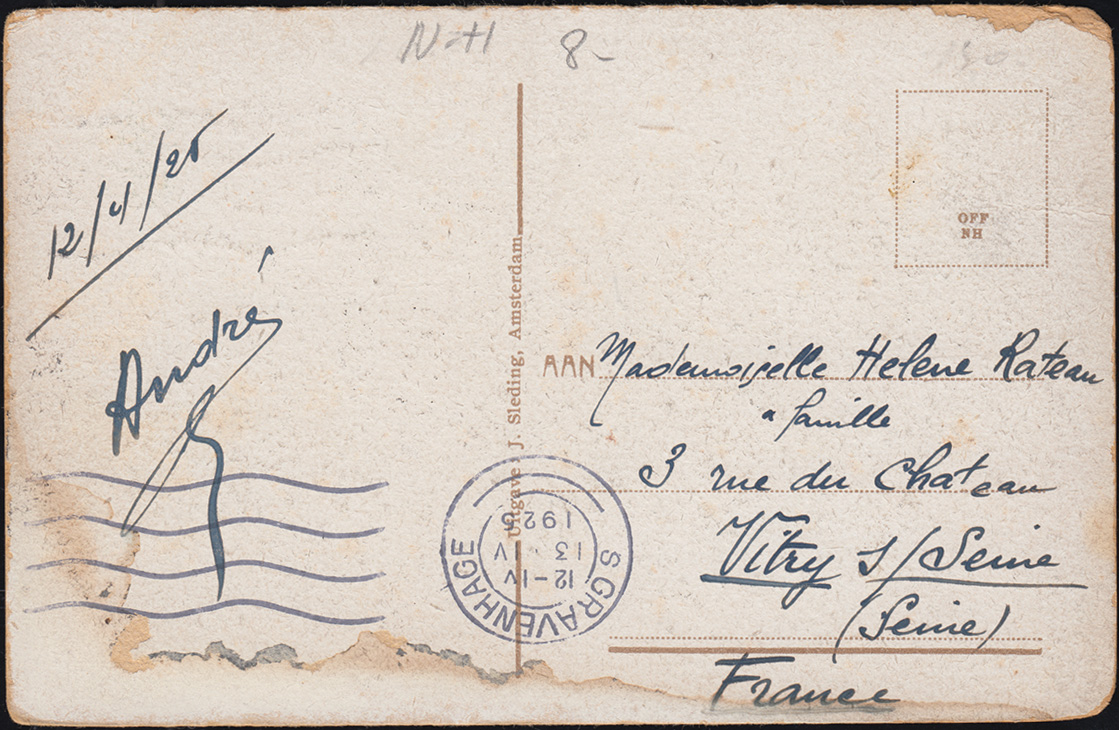 N-H 8-
12/4/25
André
Uitgave J. Sleding, Amsterdam
OFF
NH
AAN Mademoiselle Helene Rateau
" famille
3 rue du Chateau
Vitry s/Seine
(Seine)
France
S GRAVENHAGE
12-IV
13 IV
192